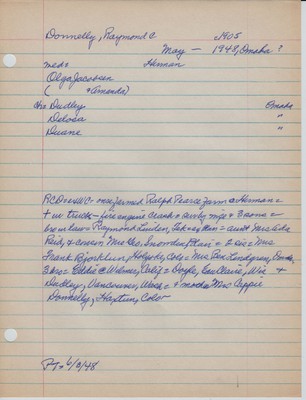 Donnelly, Raymond C =1905
May — 1948, Omaha ?
med= Herman
Olga Jacobsen
( & Amanda)
ch= Dudley Omaha
Delosa "
Duane "
RCD ex WC- once farmed Ralph Pearce farm @ Herman=
+ in truck - fire engine crash & surv by mrs & 3 sons =
bro in law = Raymond Linden, Tekamah = aunt Mrs
Reid, & cousin, Mrs Geo Snowden, Blair = 2 sis = Mrs
Frank Bjorklun, Holyoke, Colo = Mrs Lundgren, Omaha,
3 bro = Eddie @ Wilmar, Calif = Doyle, Eau Claire, Wis &
Dudley, Vancouver, Wash = & mother Mrs Cappie
Donnelly, Haxtun, Color
PT= 6/3/48